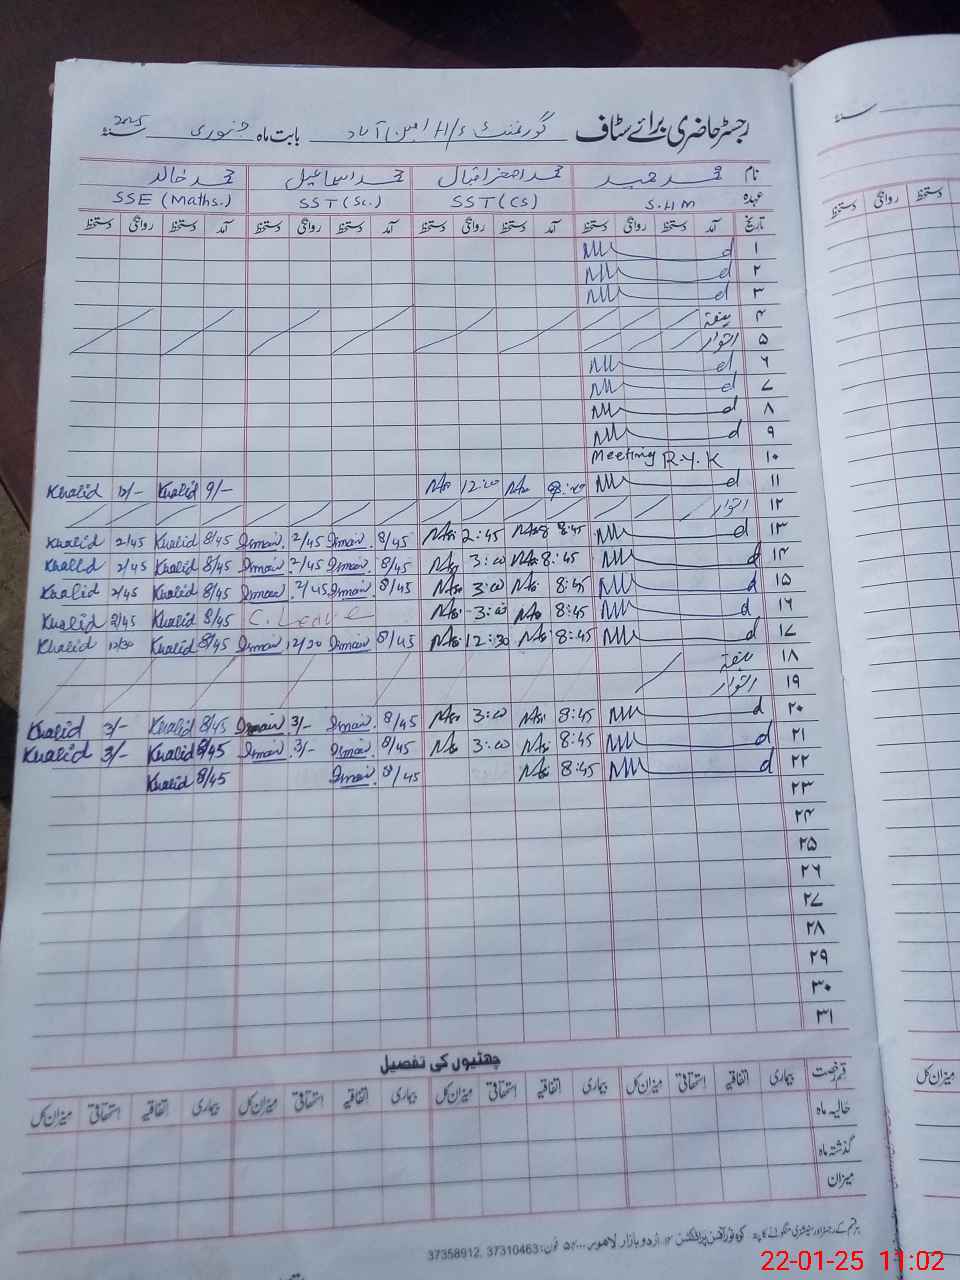 رجسٹر حاضری برائے سٹاف گورنمنٹ H/S امین آباد بابت ماہ جنوری 2025 سنۂ
نام محمد اصغر اقبال محمد اسماعیل محمد خالد
عہدہ S.H.M SST (CS) SST (Sc.) SSE (Maths.)
تاریخ آمد دستخط روانگی دستخط آمد دستخط روانگی دستخط آمد دستخط روانگی دستخط آمد دستخط روانگی دستخط
۱ d
۲ d
۳ d
۴ ہفتہ
۵ اتوار
۶ d
۷ d
۸ d
۹ d
۱۰ Meeting R.Y.K
۱۱ d 12:00 9/- Khalid Khalid
۱۲ اتوار
۱۳ d 8:45 2:45 8/45 Ismail 2/45 Ismail 8/45 Khalid 2/45 Khalid
۱۴ d 8:45 3:00 8/45 Ismail 2/45 Ismail 8/45 Khalid 2/45 Khalid
۱۵ d 8:45 3:00 8/45 Ismail 2/45 Ismail 8/45 Khalid 2/45 Khalid
۱۶ d 8:45 3:00 C. Leave 8/45 Khalid 2/45 Khalid
۱۷ d 8:45 12:30 8/45 Ismail 12/30 Ismail 8/45 Khalid 12/30 Khalid
۱۸ ہفتہ
۱۹ اتوار
۲۰ d 8:45 3:00 8/45 Ismail 3/- Ismail 8/45 Khalid 3/- Khalid
۲۱ d 8:45 3:00 8/45 Ismail 3/- Ismail 8/45 Khalid 3/- Khalid
۲۲ d 8:45 8/45 Ismail 8/45 Khalid
۲۳
۲۴
۲۵
۲۶
۲۷
۲۸
۲۹
۳۰
۳۱
چھٹیوں کی تفصیل
قسم رخصت بیماری اتفاقیہ استحقاقی میزان کل بیماری اتفاقیہ استحقاقی میزان کل بیماری اتفاقیہ استحقاقی میزان کل بیماری اتفاقیہ استحقاقی میزان کل
حالیہ ماہ
گذشتہ ماہ
میزان
اردو بازار لاہور فون: 37310463, 37358912
سنۂ
دستخط روانگی دستخط
میزان کل
22-01-25 11:02